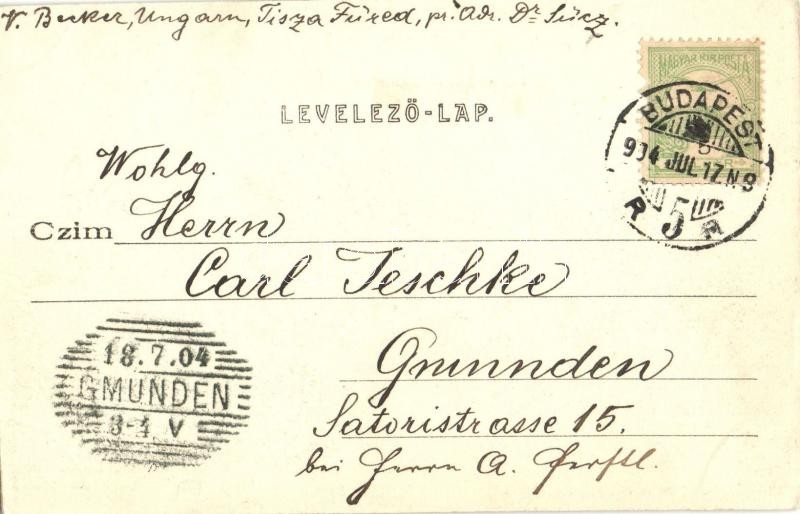 V. Becker, Ungarn, Tisza Füred, pr. Adr. Dr
MAGYAR KIR. POSTA
LEVELEZŐ-LAP.
BUDAPEST
904 JUL. 17. N. 8
5
Wohlg.
Czim Herrn
Carl Jeschke
18.7.04
GMUNDEN
3-4 V
Gmunden
Satoristrasse 15.
bei Herrn A. Ferstl.